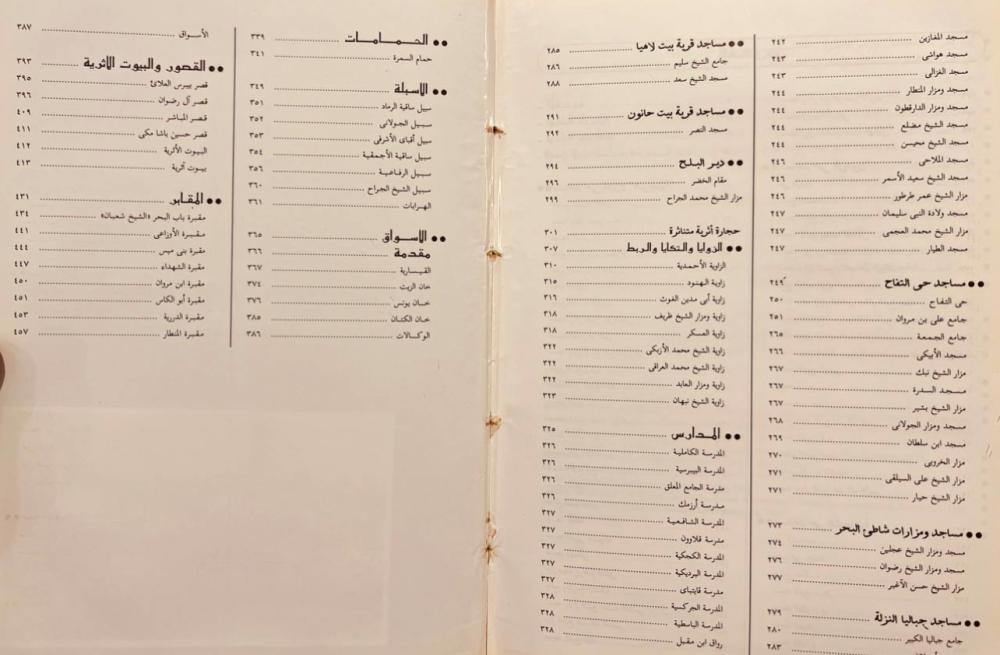 مسجد المغازين ٢٤٢
مسجد هواشي ٢٤٣
مسجد الغزالى ٢٤٣
مسجد ومزار المنطار ٢٤٤
مسجد ومزار الدارقطون ٢٤٤
مسجد الشيخ مضلع ٢٤٤
مسجد الشيخ محيسن ٢٤٤
مسجد الملاحى ٢٤٦
مسجد الشيخ سعيد الأسمر ٢٤٦
مزار الشيخ عمر طرطور ٢٤٦
مسجد ولادة النبى سليمان ٢٤٧
مزار الشيخ محمد العجمى ٢٤٧
مسجد الطيار ٢٤٧
●● مساجد حى التفاح ٢٤٩
حى التفاح ٢٥٠
جامع على بن مروان ٢٥١
جامع الجمعة ٢٦٥
مسجد الأيبكى ٢٦٦
مزار الشيخ نبك ٢٦٧
مسجد السدرة ٢٦٧
مزار الشيخ بشير ٢٦٧
مسجد ومزار الجولانى ٢٦٨
مسجد ابن سلطان ٢٦٩
مزار الخروبى ٢٧٠
مزار الشيخ على السيلقى ٢٧١
مزار الشيخ حيار ٢٧١
●● مساجد ومزارات شاطئ البحر ٢٧٣
مسجد ومزار الشيخ عجلين ٢٧٤
مسجد ومزار الشيخ رضوان ٢٧٦
مزار الشيخ حسن الأغبر ٢٧٧
●● مساجد جباليا النزلة ٢٧٩
جامع جباليا الكبير ٢٨٠
٢٨٣
●● مساجد قرية بيت لاهيا ٢٨٥
جامع الشيخ سليم ٢٨٦
مسجد الشيخ سعد ٢٨٨
●● مساجد قرية بيت حانون ٢٩١
مسجد النصر ٢٩٢
●● دير البلح ٢٩٤
مقام الخضر ٢٩٦
مزار الشيخ محمد الجراح ٢٩٩
حجارة أثرية متناثرة ٣٠١
●● الزوايا والتكايا والربط ٣٠٧
الزاوية الأحمدية ٣١٠
زاوية الهنود ٣١٥
زاوية أبى مدين الغوث ٣١٦
زاوية ومزار الشيخ ظريف ٣١٨
زاوية العسكر ٣١٨
زاوية الشيخ محمد الأزبكى ٣٢٢
زاوية الشيخ محمد العراقى ٣٢٢
زاوية ومزار العابد ٣٢٢
زاوية الشيخ نبهان ٣٢٣
●● المدارس ٣٢٥
المدرسة الكاملية ٣٢٦
المدرسة البيبرسية ٣٢٦
مدرسة الجامع المعلق ٣٢٦
مدرسة أرزمك ٣٢٦
المدرسة الشافعية ٣٢٧
مدرسة قلاوون ٣٢٧
المدرسة الكجكية ٣٢٧
المدرسة البرديكية ٣٢٧
مدرسة قايتباى ٣٢٧
المدرسة الجركسية ٣٢٨
المدرسة الباسطية ٣٢٨
رواق ابن مقبل ٣٢٨
●● الحمامات ٣٣٩
حمام السمرة ٣٤١
●● الأسبلة ٣٤٩
سبيل ساقية الرماد ٣٥١
سبيل الجولانى ٣٥٢
سبيل أقباى الأشرفى ٣٥٣
سبيل ساقية الأجمقية ٣٥٤
سبيل الرفاعية ٣٥٦
سبيل الشيخ الجراح ٣٦٠
الهرابات ٣٦١
●● الأسواق ٣٦٥
مقدمة ٣٦٦
القيسارية ٣٦٧
خان الزيت ٣٧٤
خان يونس ٣٧٦
خان الكتان ٣٨٥
الوكالات ٣٨٦
الأسواق ٣٨٧
●● القصور والبيوت الأثرية ٣٩٣
قصر بيبرس العلائى ٣٩٥
قصر آل رضوان ٣٩٦
قصر المباشر ٤٠٩
قصر حسين باشا مكى ٤١١
البيوت الأثرية ٤١٢
بيوت أثرية ٤١٣
●● المقابر ٤٣١
مقبرة باب البحر «الشيخ شعبان» ٤٣٤
مقبرة الأوزاعى ٤٤١
مقبرة بنى ميس ٤٤٤
مقبرة الشهداء ٤٤٧
مقبرة ابن مروان ٤٥٠
مقبرة أبو الكاس ٤٥١
مقبرة الدررية ٤٥٣
مقبرة المنطار ٤٥٧